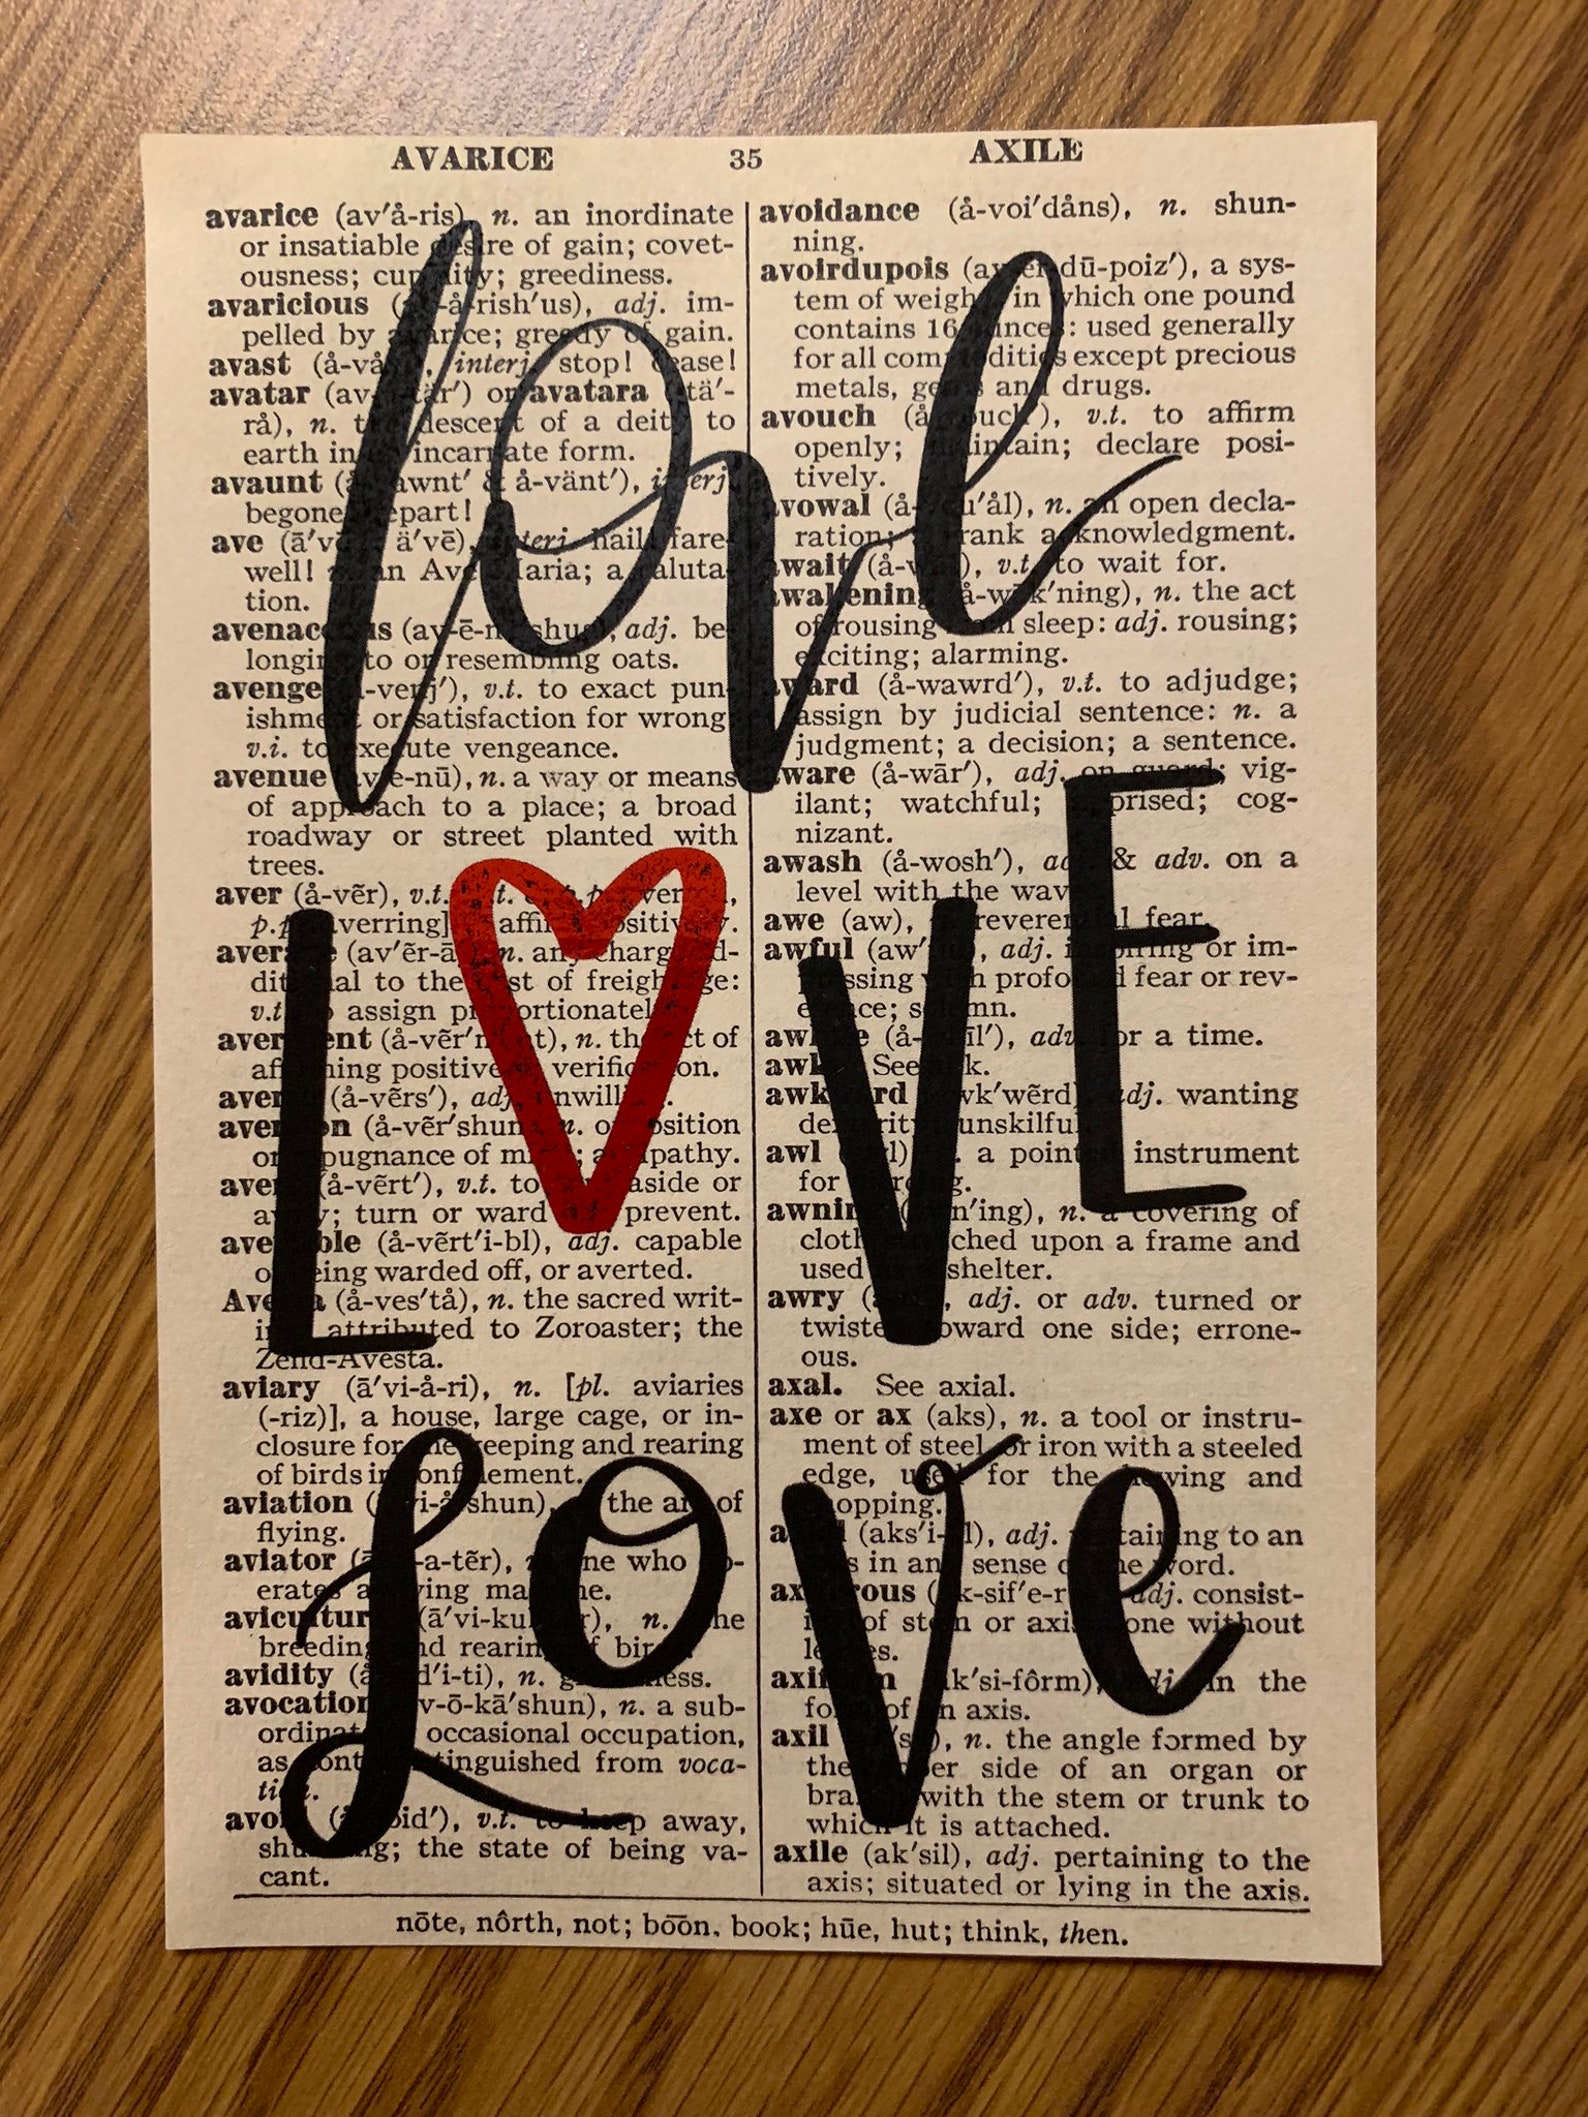 AVARICE 35 AXILE
avarice (av'å-ris), n. an inordinate
or insatiable desire of gain; covet-
ousness; cupidity; greediness.
avaricious (av-å-rish'us), adj. im-
pelled by avarice; greedy of gain.
avast (å-våst'), interj. stop! cease!
avatar (av-å-tär') or avatara (-tä'-
rå), n. the descent of a deity to
earth in an incarnate form.
avaunt (å-vawnt' & å-vänt'), interj.
begone! depart!
ave (ā'vē, ä'vē), interj. hail! fare-
well! n. an Ave Maria; a saluta-
tion.
avenaceous (av-ē-nā'shus), adj. be-
longing to or resembling oats.
avenge (å-venj'), v.t. to exact pun-
ishment or satisfaction for wrong:
v.i. to execute vengeance.
avenue (av'e-nū), n. a way or means
of approach to a place; a broad
roadway or street planted with
trees.
aver (å-vẽr), v.t. p.p.
p.pr. averring] affirm positively.
average (av'ẽr-āj), n. any charge ad-
ditional to the cost of freightage:
v.t. to assign proportionately.
averment (å-vẽr'ment), n. the act of
affirming positively; verification.
averse (å-vẽrs'), adj. unwilling.
aversion (å-vẽr'shun), n. opposition
or repugnance of mind; antipathy.
avert (å-vẽrt'), v.t. to turn aside or
away; turn or ward off; prevent.
avertible (å-vẽrt'i-bl), adj. capable
of being warded off, or averted.
Avesta (å-ves'tå), n. the sacred writ-
ings attributed to Zoroaster; the
Zend-Avesta.
aviary (ā'vi-å-ri), n. [pl. aviaries
(-riz)], a house, large cage, or in-
closure for the keeping and rearing
of birds in confinement.
aviation (ā-vi-å'shun), n. the art of
flying.
aviator (ā'vi-a-tẽr), n. one who op-
erates a flying machine.
aviculture (ā'vi-kul-tūr), n. the
breeding and rearing of birds.
avidity (å-vid'i-ti), n. greediness.
avocation (av-ō-kā'shun), n. a sub-
ordinate or occasional occupation,
as contradistinguished from voca-
tion.
avoid (å-void'), v.t. to keep away,
shunning; the state of being va-
cant.
avoidance (å-voi'dåns), n. shun-
ning.
avoirdupois (av-ẽr-dū-poiz'), a sys-
tem of weight in which one pound
contains 16 ounces: used generally
for all commodities except precious
metals, gems and drugs.
avouch (å-vouch'), v.t. to affirm
openly; maintain; declare posi-
tively.
avowal (å-vou'ål), n. an open decla-
ration; frank acknowledgment.
await (å-wāt'), v.t. to wait for.
awakening (å-wāk'ning), n. the act
of rousing from sleep: adj. rousing;
exciting; alarming.
award (å-wawrd'), v.t. to adjudge;
assign by judicial sentence: n. a
judgment; a decision; a sentence.
aware (å-wār'), adj. on guard; vig-
ilant; watchful; apprised; cog-
nizant.
awash (å-wosh'), adj. & adv. on a
level with the waves.
awe (aw), n. reverential fear.
awful (aw'ful), adj. inspiring or im-
pressing with profound fear or rev-
erence; solemn.
awhile (å-hwīl'), adv. for a time.
awk. See auk.
awkward (awk'wẽrd), adj. wanting
dexterity; unskilful.
awl (awl), n. a pointed instrument
for piercing.
awning (awn'ing), n. a covering of
cloth stretched upon a frame and
used as a shelter.
awry (å-rī'), adj. or adv. turned or
twisted toward one side; errone-
ous.
axal. See axial.
axe or ax (aks), n. a tool or instru-
ment of steel or iron with a steeled
edge, used for the hewing and
chopping.
axial (aks'i-ål), adj. pertaining to an
axis in any sense of the word.
axiferous (ak-sif'e-rus), adj. consist-
ing of stem or axis alone without
leaves.
axiform (ak'si-fôrm), adj. in the
form of an axis.
axil (ak'sil), n. the angle formed by
the upper side of an organ or
branch with the stem or trunk to
which it is attached.
axile (ak'sil), adj. pertaining to the
axis; situated or lying in the axis.
nōte, nôrth, not; bōōn, book; hūe, hut; think, then.
love
L♥VE
Love